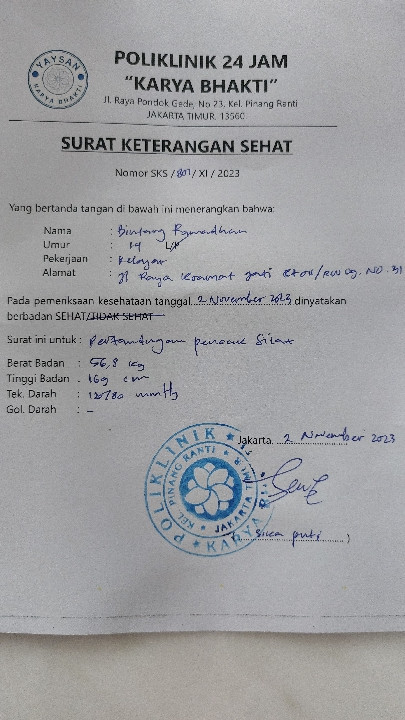 YAYSAN
KARYA BHAKTI
POLIKLINIK 24 JAM
"KARYA BHAKTI"
Jl. Raya Pondok Gede, No 23, Kel. Pinang Ranti
JAKARTA TIMUR. 13560
SURAT KETERANGAN SEHAT
Nomor SKS /801/ XI / 2023
Yang bertanda tangan di bawah ini menerangkan bahwa:
Nama : Bintang Ramadhan
Umur : 14 L/P
Pekerjaan : Pelajar
Alamat : Jl Raya Kramat Jati NO. 31
Pada pemeriksaan kesehataan tanggal 2 November 2023 dinyatakan
berbadan SEHAT/TIDAK SEHAT
Surat ini untuk : Pertandingan pencak Silat
Berat Badan : 56,8 kg
Tinggi Badan : 169 cm
Tek. Darah : 120/80 mmHg
Gol. Darah : -
Jakarta, 2 November 2023
POLIKLINIK
KEL. PINANG RANTI
JAKARTA TIMUR
KARYA
( Sika puti )